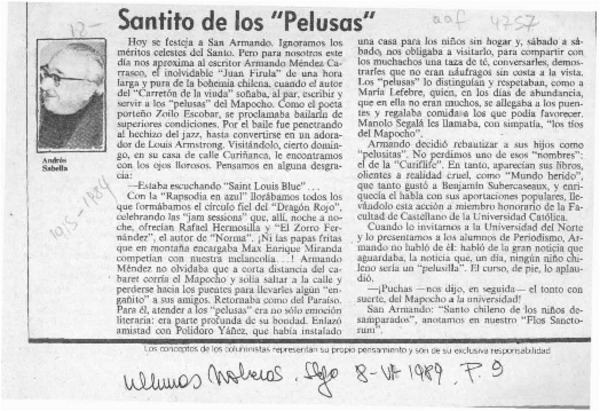 Santito de los "Pelusas"
aaf 4757
12-
Andrés
Sabella
Hoy se festeja a San Armando. Ignoramos los
méritos celestes del Santo. Pero para nosotros este
día nos aproxima al escritor Armando Méndez Ca-
rrasco, el inolvidable "Juan Firula" de una hora
larga y pura de la bohemia chilena, cuando el autor
del "Carretón de la viuda" soñaba, al par, escribir y
servir a los "pelusas" del Mapocho. Como el poeta
porteño Zoilo Escobar, se proclamaba bailarín de
superiores condiciones. Por el baile fue penetrando
al hechizo del jazz, hasta convertirse en un adora-
dor de Louis Armstrong. Visitándolo, cierto domin-
go, en su casa de calle Curiñanca, le encontramos
con los ojos llorosos. Pensamos en alguna desgra-
cia:
—Estaba escuchando "Saint Louis Blue"...
Con la "Rapsodia en azul" llorábamos todos los
que formábamos el círculo fiel del "Dragón Rojo",
celebrando las "jam sessions" que, allí, noche a no-
che, ofrecían Rafael Hermosilla y "El Zorro Fer-
nández", el autor de "Norma". ¡Ni las papas fritas
que en montaña encargaba Max Enrique Miranda
competían con nuestra melancolía...! Armando
Méndez no olvidaba que a corta distancia del ca-
baret corría el Mapocho y solía saltar a la calle y
perderse hacia los puentes para llevarles algún "en-
gañito" a sus amigos. Retornaba como del Paraíso.
Para él, atender a los "pelusas" era no sólo emoción
literaria: era parte profunda de su bondad. Enlazó
amistad con Polidoro Yáñez, que había instalado
una casa para los niños sin hogar y, sábado a sá-
bado, nos obligaba a visitarlo, para compartir con
los muchachos una taza de té, conversarles, demos-
trarles que no eran náufragos sin costa a la vista.
Los "pelusas" lo distinguían y respetaban, como a
María Lefebre, quien, en los días de abundancia,
que en ella no eran muchos, se allegaba a los puen-
tes y regalaba comidas a los que podía favorecer.
Manolo Segalá les llamaba, con simpatía, "los tíos
del Mapocho".
Armando decidió rebautizar a sus hijos como
"pelusitas". No perdimos uno de esos "nombres":
el de la "Curiflife". En tanto, aparecían sus libros,
olientes a realidad cruel, como "Mundo herido",
que tanto gustó a Benjamín Subercaseaux, y enri-
quecía el habla con sus aportaciones populares, lle-
vándolo esta acción a miembro honorario de la Fa-
cultad de Castellano de la Universidad Católica.
Cuando lo invitamos a la Universidad del Norte
y lo presentamos a los alumnos de Periodismo, Ar-
mando no habló de él: habló de la gran noticia que
aguardaba, la noticia que, un día, ningún niño chi-
leno sería un "pelusilla". El curso, de pie, lo aplau-
dió.
—¡Puchas —nos dijo, en seguida— el tonto con
suerte, del Mapocho a la universidad!
San Armando: "Santo chileno de los niños de-
samparados", anotamos en nuestro "Flos Sancto-
rum".
Los conceptos de los columnistas representan su propio pensamiento y son de su exclusiva responsabilidad
Ultimas Noticias. Stgo 8-VI-1989. P. 9